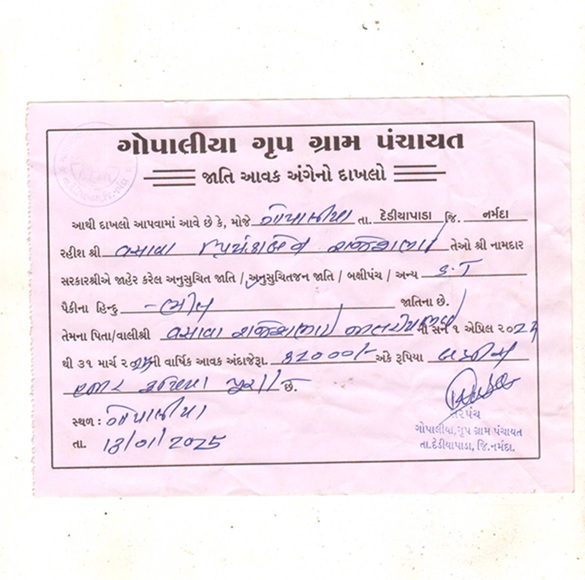 ગોપાલીયા ગૃપ ગ્રામ પંચાયત
જાતિ આવક અંગેનો દાખલો
આથી દાખલો આપવામાં આવે છે કે, મોજે ગોપાલીયા તા. દેડીયાપાડા જિ. નર્મદા
રહીશ શ્રી વસાવા તેઓ શ્રી નામદાર
સરકારશ્રીએ જાહેર કરેલ અનુસુચિત જાતિ / અનુસુચિતજન જાતિ / બક્ષીપંચ / અન્ય S.T
પૈકીના હિન્દુ - ભીલ જાતિના છે.
તેમના પિતા/વાલીશ્રી વસાવા ની સને ૧ એપ્રિલ ૨૦
થી ૩૧ માર્ચ ૨૦ ની વાર્ષિક આવક અંદાજેરૂા. 32000/- અંકે રૂપિયા બત્રીસ
હજાર રૂપિયા પુરા છે.
સ્થળ : ગોપાલીયા
તા. 13/01/2025
સરપંચ
ગોપાલીયા, ગૃપ ગ્રામ પંચાયત
તા.દેડીયાપાડા, જિ.નર્મદા.